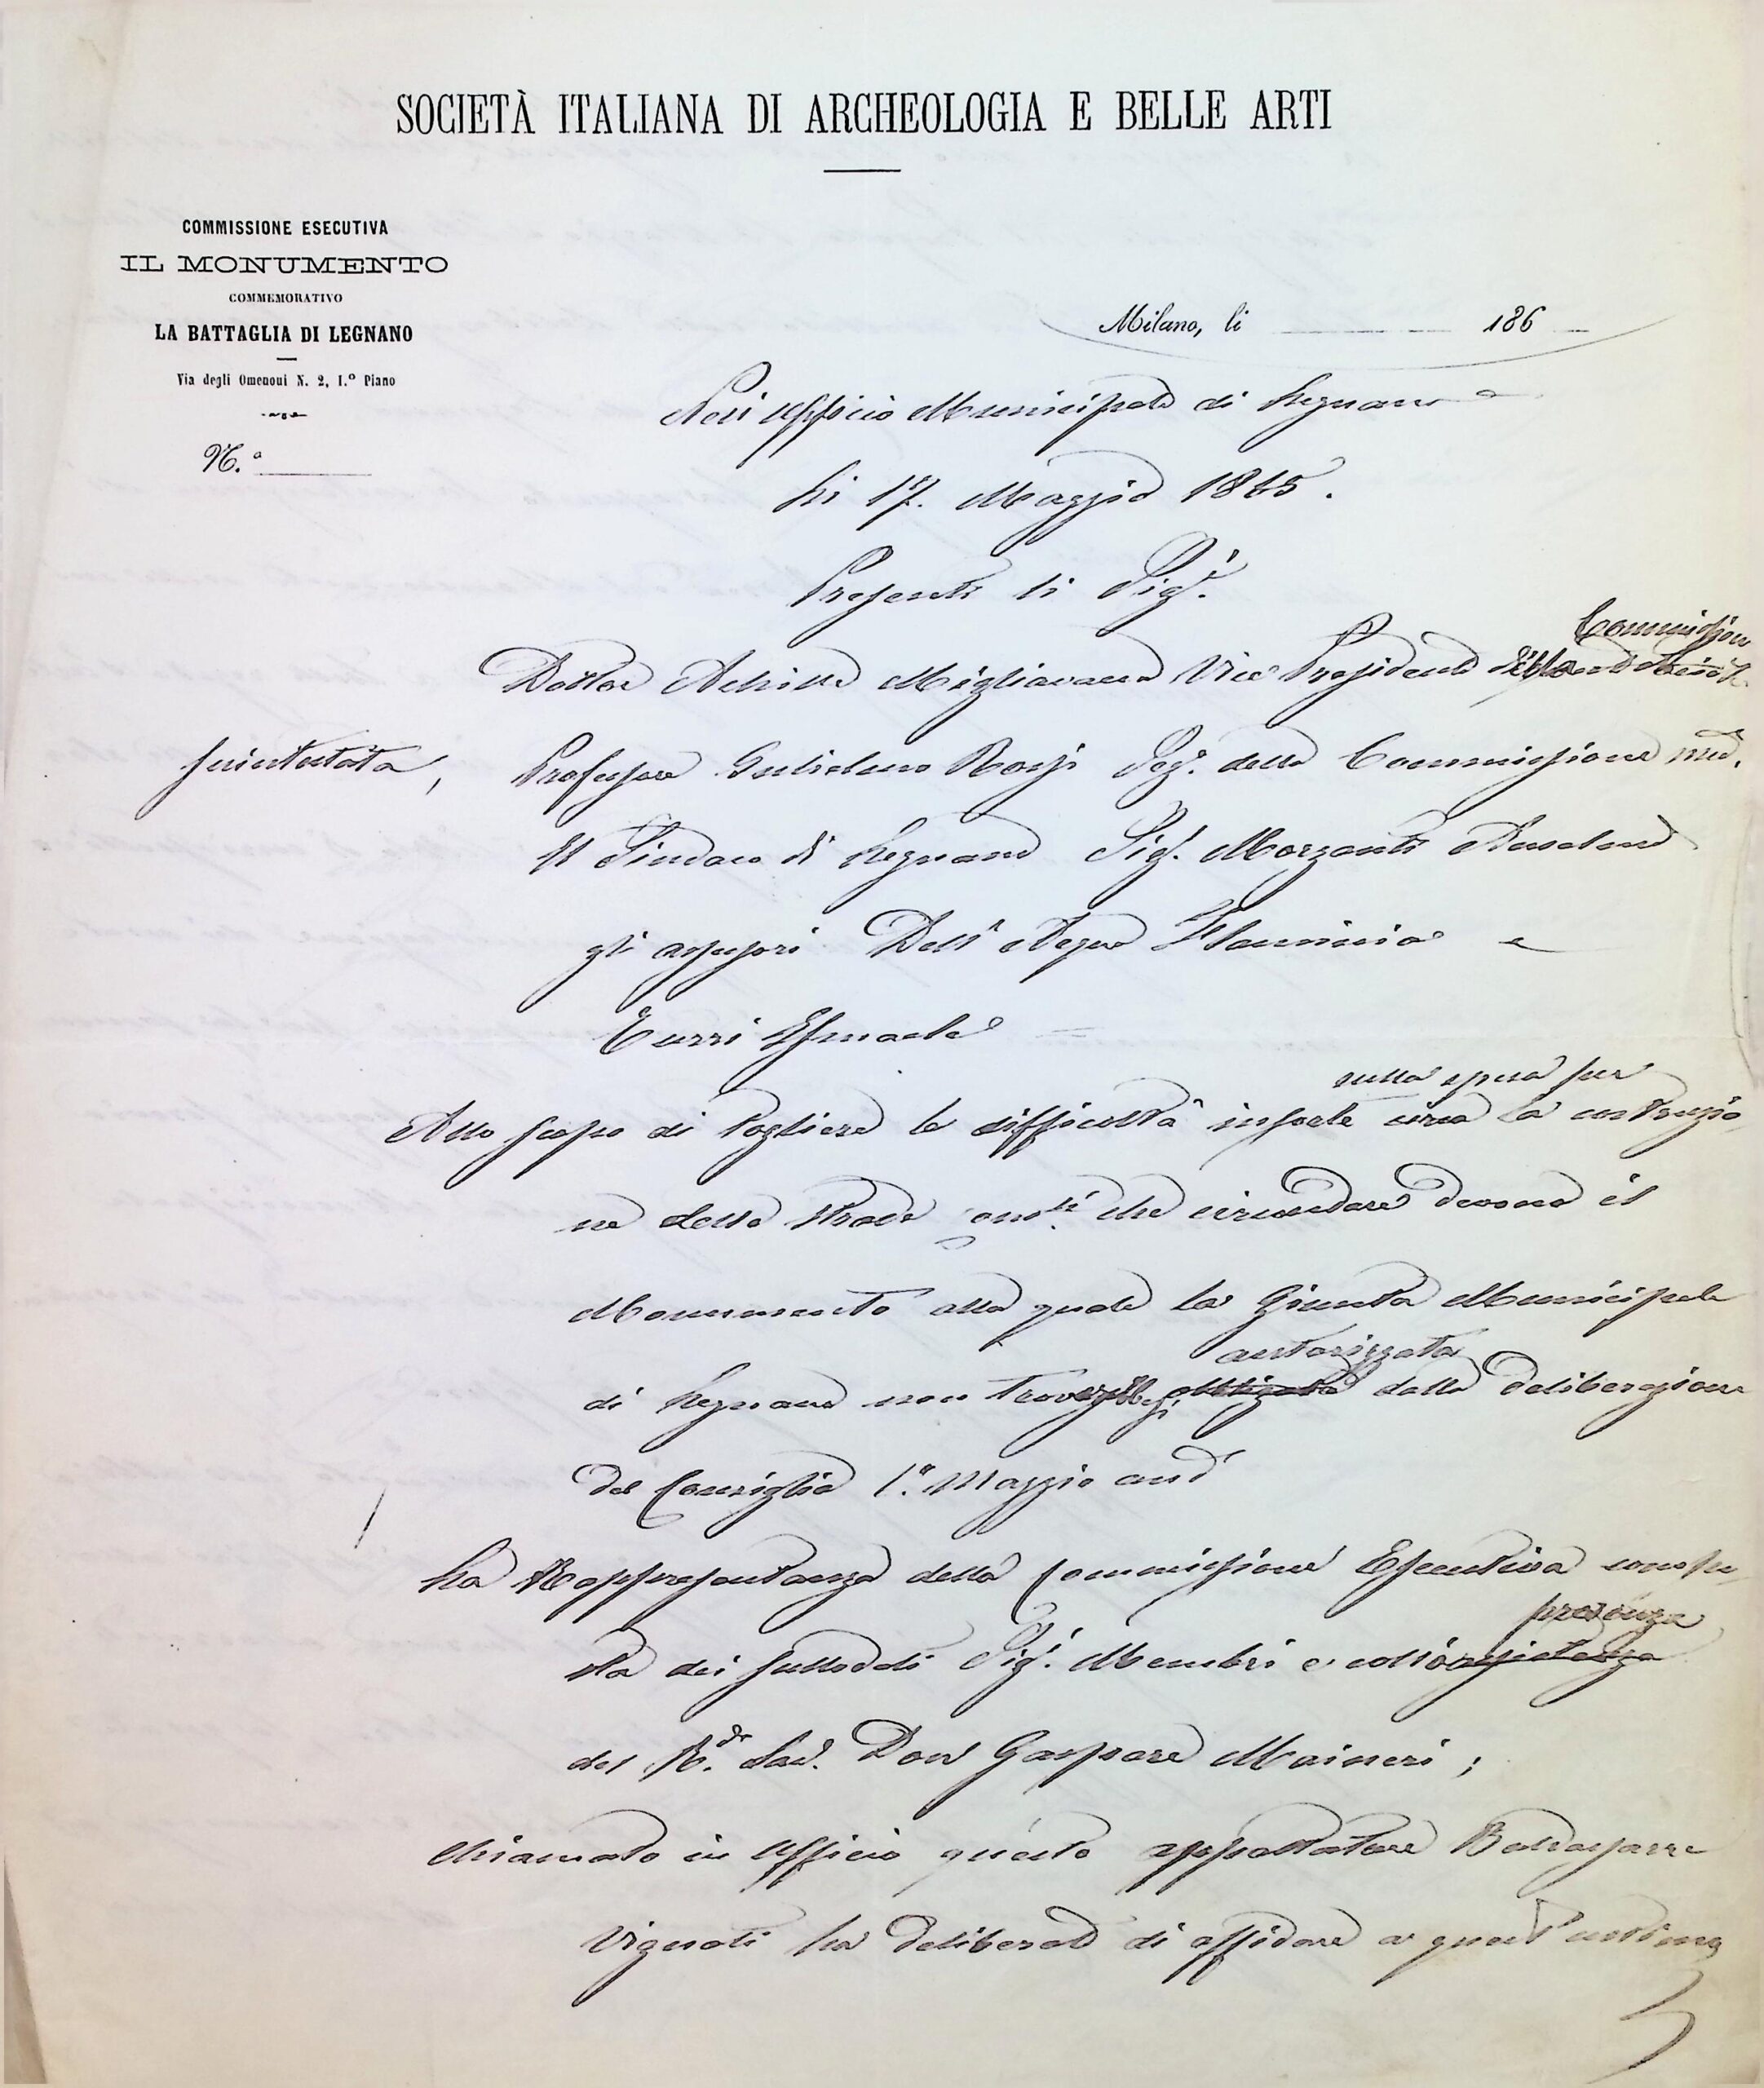 SOCIETÀ ITALIANA DI ARCHEOLOGIA E BELLE ARTI
COMMISSIONE ESECUTIVA
IL MONUMENTO
COMMEMORATIVO
LA BATTAGLIA DI LEGNANO
Via degli Omenoni N. 2, I.º Piano
N.º
Milano, li 186
Nell'Ufficio Municipale di Legnano
Li 17. Maggio 1865.
Presenti li Sig.ri
Commissione
Dottor Achille Migliavacca Vice Presidente della
suintestata, Professore Giuliano Rossi Seg.º della Commissione med.
Il Sindaco di Legnano Sig. Anselmo
gli assessori Dell'Acqua Flaminio e
Turri Ismaele
sulla spesa per
Allo scopo di togliere le difficoltà insorte circa la costruzio
ne delle strade che circondare devono il
Monumento alla quale la Giunta Municipale
autorizzata
di Legnano non obbligata dalla deliberazione
del Consiglio 1.º Maggio and.
La Rappresentanza della Commissione Esecutiva compo-
presenza
sta dei sullodati Sig.i Membri e coll'assistenza
del R.do Don Gaspare Maineri;
chiamato in Ufficio questo appaltatore Baldassarre
Vignati ha deliberato di affidare a quest'ultimo